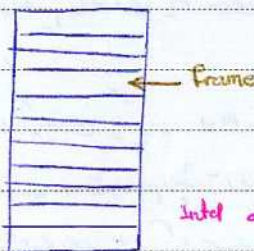 frame
Intel